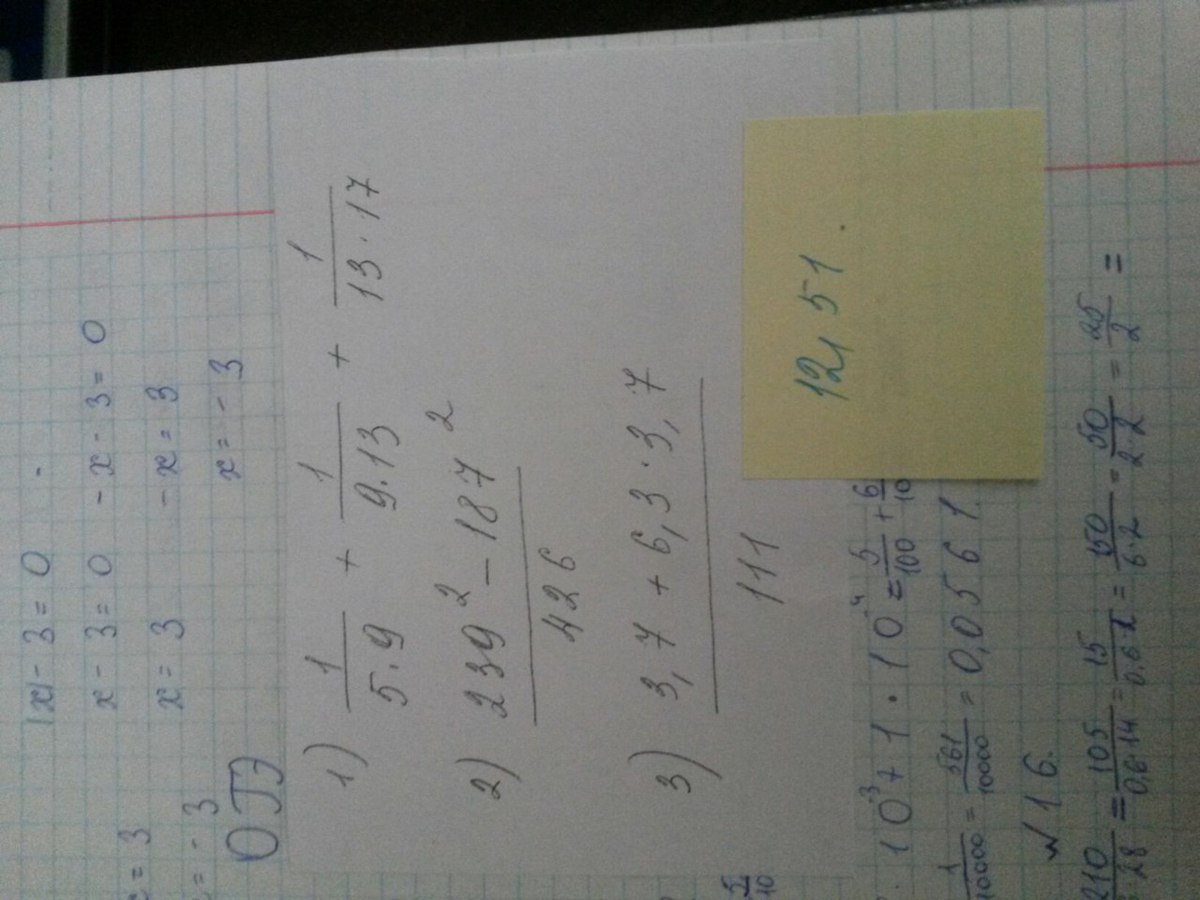 |x| - 3 = 0
x - 3 = 0   - x - 3 = 0
x = 3   - x = 3
x = - 3
= 3
= - 3
ОГЭ
1) 1/(5·9) + 1/(9·13) + 1/(13·17)
2) (239² - 187²)/426
3) (3,7 + 6,3 · 3,7)/111
12,51.
10⁻³ + 1 · 10⁻⁴ = 5/100 + 6/10
1/10000 = 561/10000 = 0,0561.
√16.
210/28 = 105/(0,6·14) = 15/(0,6·2) = 150/(6·2) = 50/(2·2) = 25/2 =